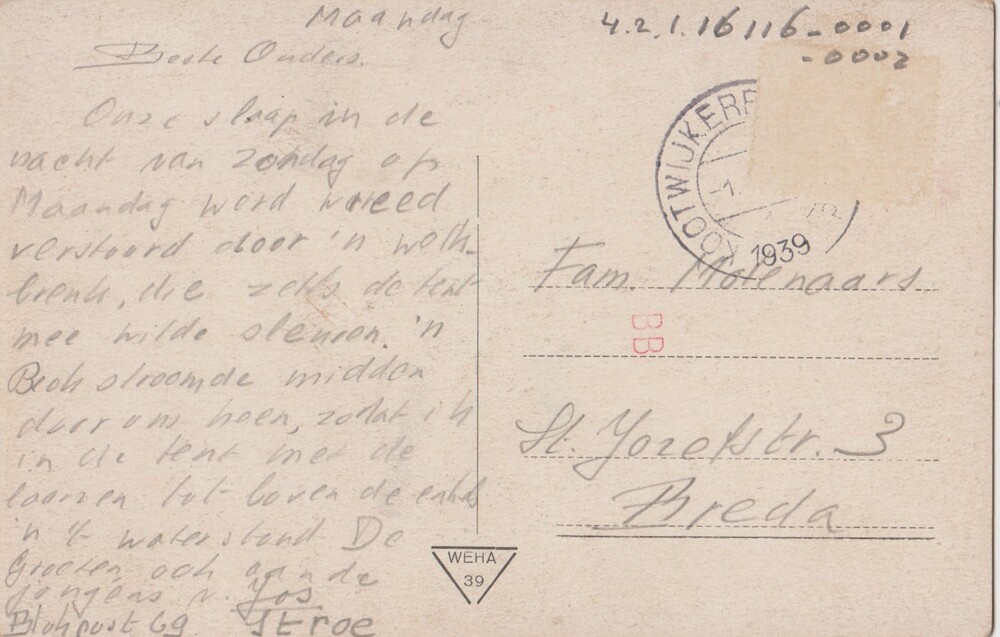 Maandag
Beste Ouders.
Onze slaap in de
nacht van zondag op
Maandag werd wreed
verstoord door 'n wolk-
breuk, die zelfs de tent
mee wilde sleuren. 'n
Beek stroomde midden
door ons heen, zodat ik
in de tent met de
laarzen tot boven de enkels
in 't water stond De
Groeten ook aan de
jongens v. Jos
69 Stroe
4.2.1.16116-0001
-0002
KOOTWIJKERB
-1.
1939
Fam. Molenaars
BB
St. Jozefstr. 3
Breda
WEHA
39